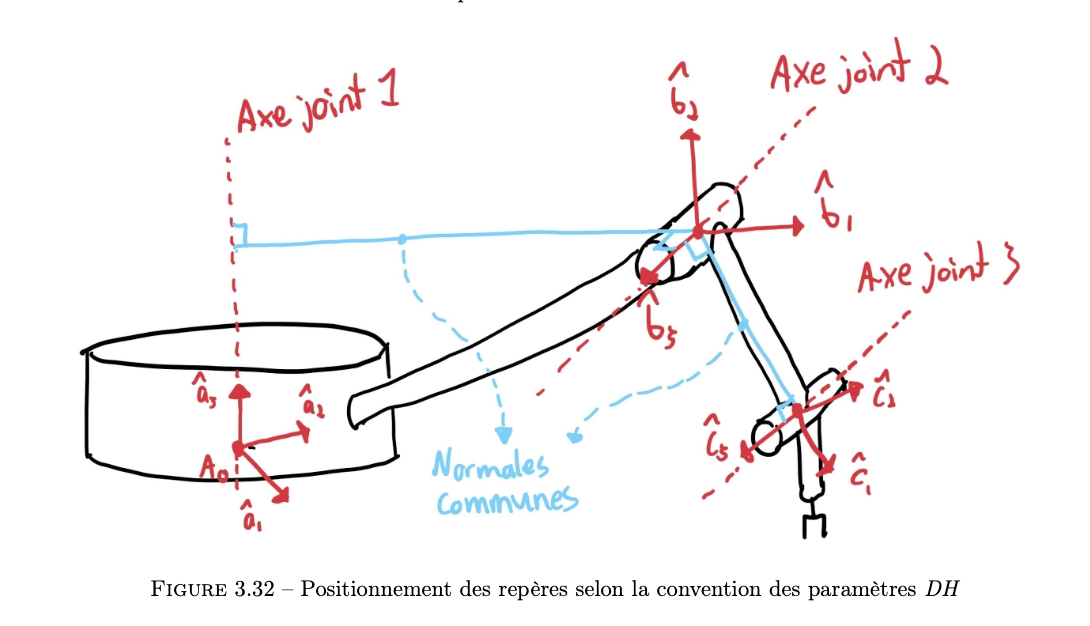 Axe joint 1
Axe joint 2
b̂₂
b̂₁
Axe joint 3
b̂₃
â₃
â₂
A₀
â₁
ĉ₂
ĉ₃
ĉ₁
Normales
communes
FIGURE 3.32 – Positionnement des repères selon la convention des paramètres DH